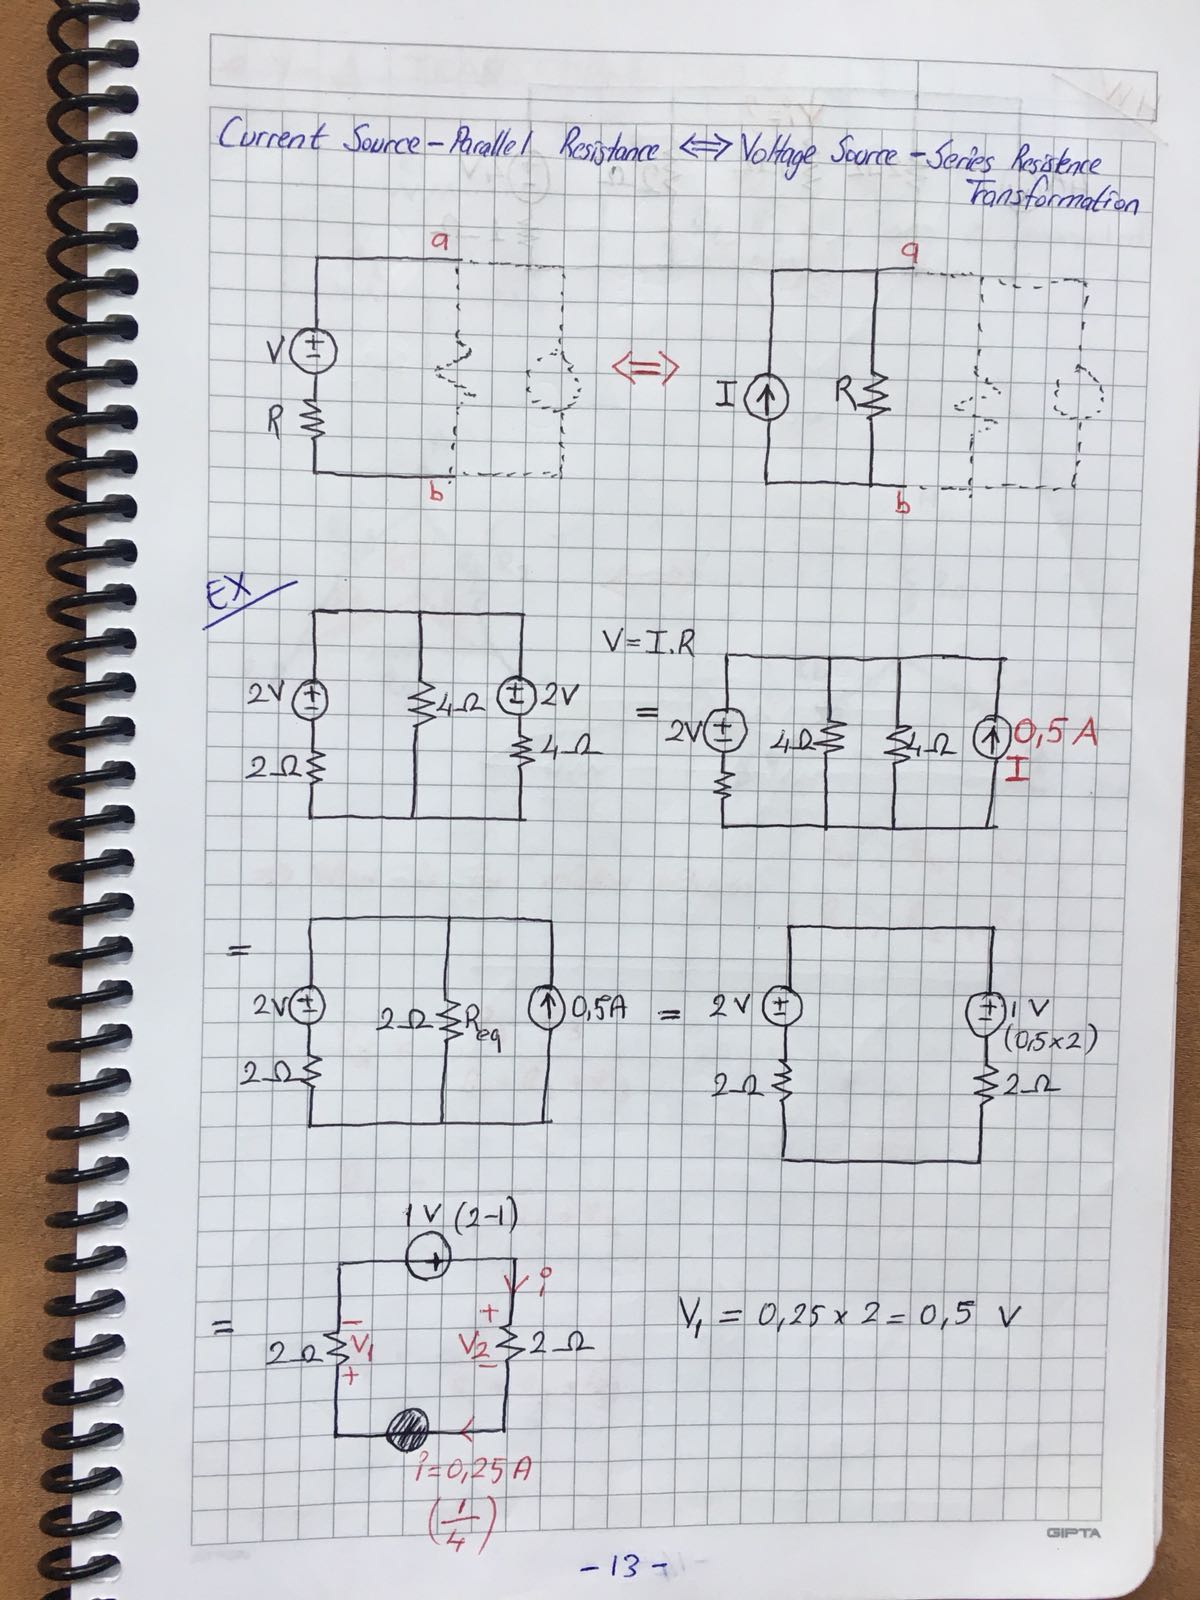 Current Source-Parallel Resistance ⇔ Voltage Source-Series Resistence
Transformation
a
V
R
b
⇔
a
I
R
b
EX
2V
2Ω
4Ω
2V
4Ω
V=I.R
=
2V
4Ω
4Ω
0,5 A
I
=
2V
2Ω
2Ω
Req
0,5A
=
2V
2Ω
1V
(0,5×2)
2Ω
=
1V (2-1)
i
2Ω
V1
V2
2Ω
i=0,25A
(1/4)
V1 = 0,25 × 2 = 0,5 V
GIPTA
-13-